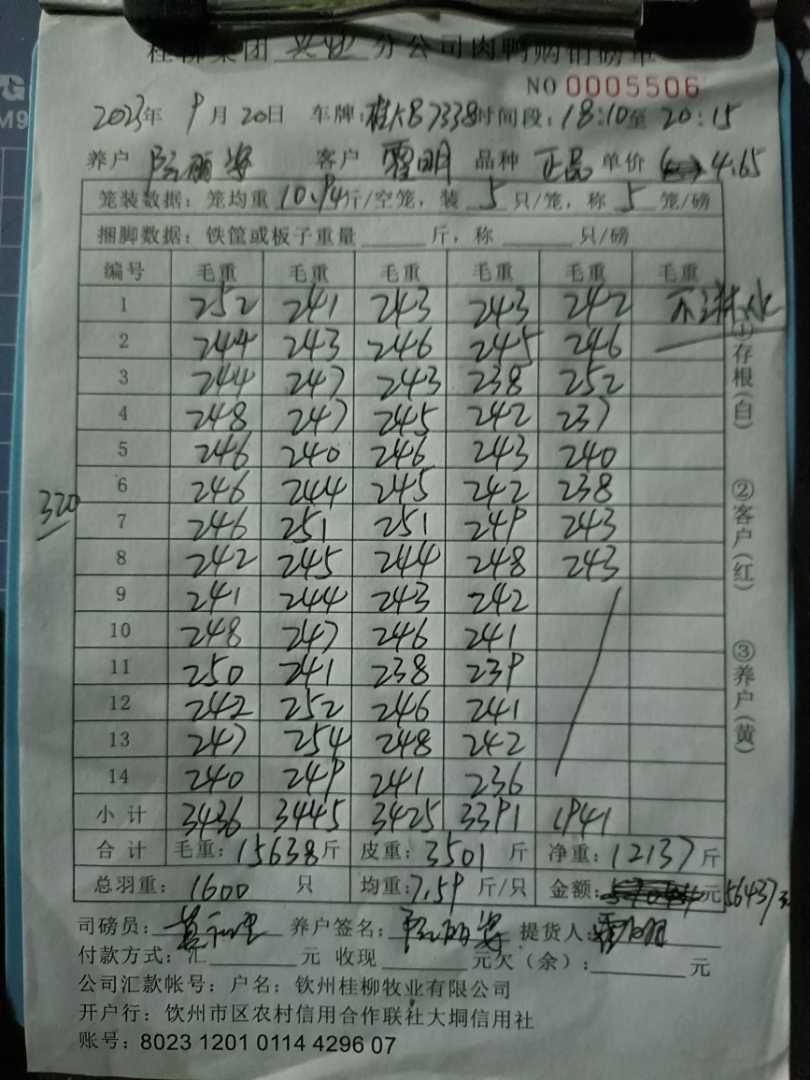 桂柳集团 兴业 分公司肉鸭购销磅单
NO 0005506
2023年 9月20日 车牌:桂K87338时间段:18:10至20:15
养户 客户 品种 正品 单价 4.65
笼装数据:笼均重10.94斤/空笼,装 5 只/笼,称 5 笼/磅
捆脚数据:铁筐或板子重量 斤,称 只/磅
编号 毛重 毛重 毛重 毛重 毛重 毛重
1 252 241 243 243 242 不淋水
2 244 243 246 245 246
3 244 247 243 238 252
4 248 247 245 242 237
5 246 240 246 243 240
6 246 244 245 242 238
320
7 246 251 251 249 243
8 242 245 244 248 243
9 241 244 243 242
10 248 247 246 241
11 250 241 238 239
12 242 252 246 241
13 247 254 248 242
14 240 249 241 236
小计 3436 3445 3425 3391 1941
合计 毛重:15638斤 皮重:3501斤 净重:12137斤
总羽重:1600 只 均重:7.59斤/只 金额: 元56437
司磅员: 养户签名: 提货人:
付款方式:汇 元 收现 元欠(余): 元
公司汇款帐号:户名:钦州桂柳牧业有限公司
开户行:钦州市区农村信用合作联社大垌信用社
账号:8023 1201 0114 4296 07
①存根(白) ②客户(红) ③养户(黄)